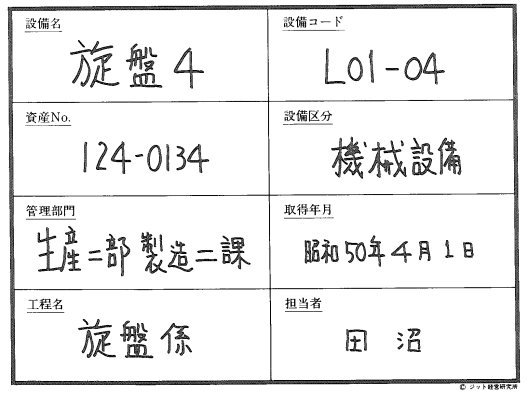 設備名
旋盤4
設備コード
L01-04
資産No.
124-0134
設備区分
機械設備
管理部門
生産二部製造二課
取得年月
昭和50年4月1日
工程名
旋盤係
担当者
田沼
© ジット経営研究所